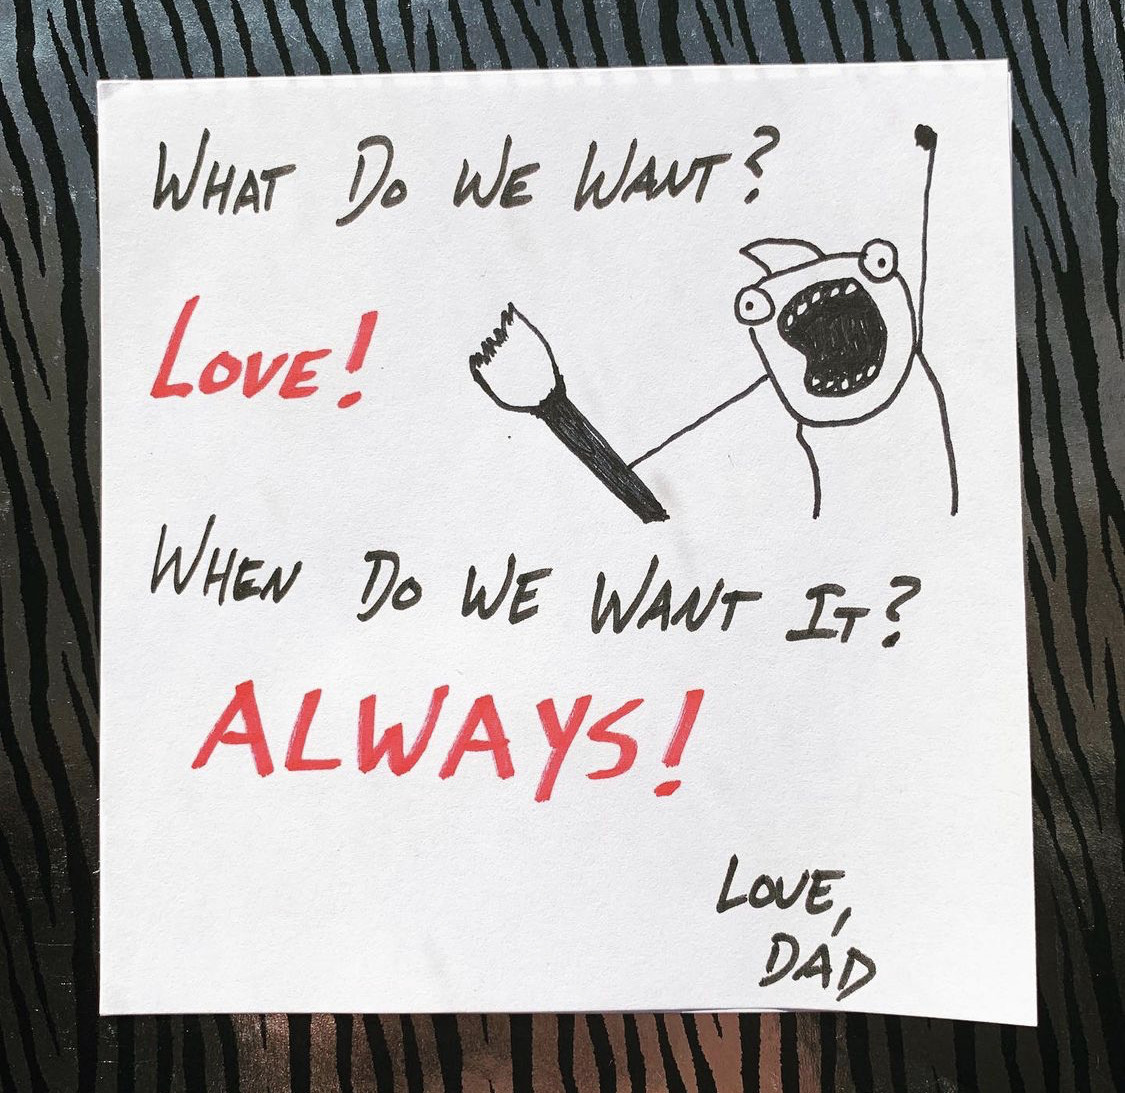 What Do We Want?
Love!
When Do We Want It?
ALWAYS!
Love,
Dad